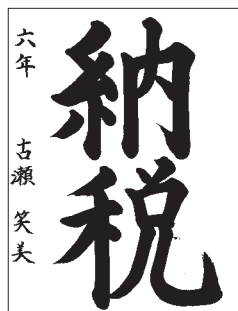 納税
六年 古瀬 笑美